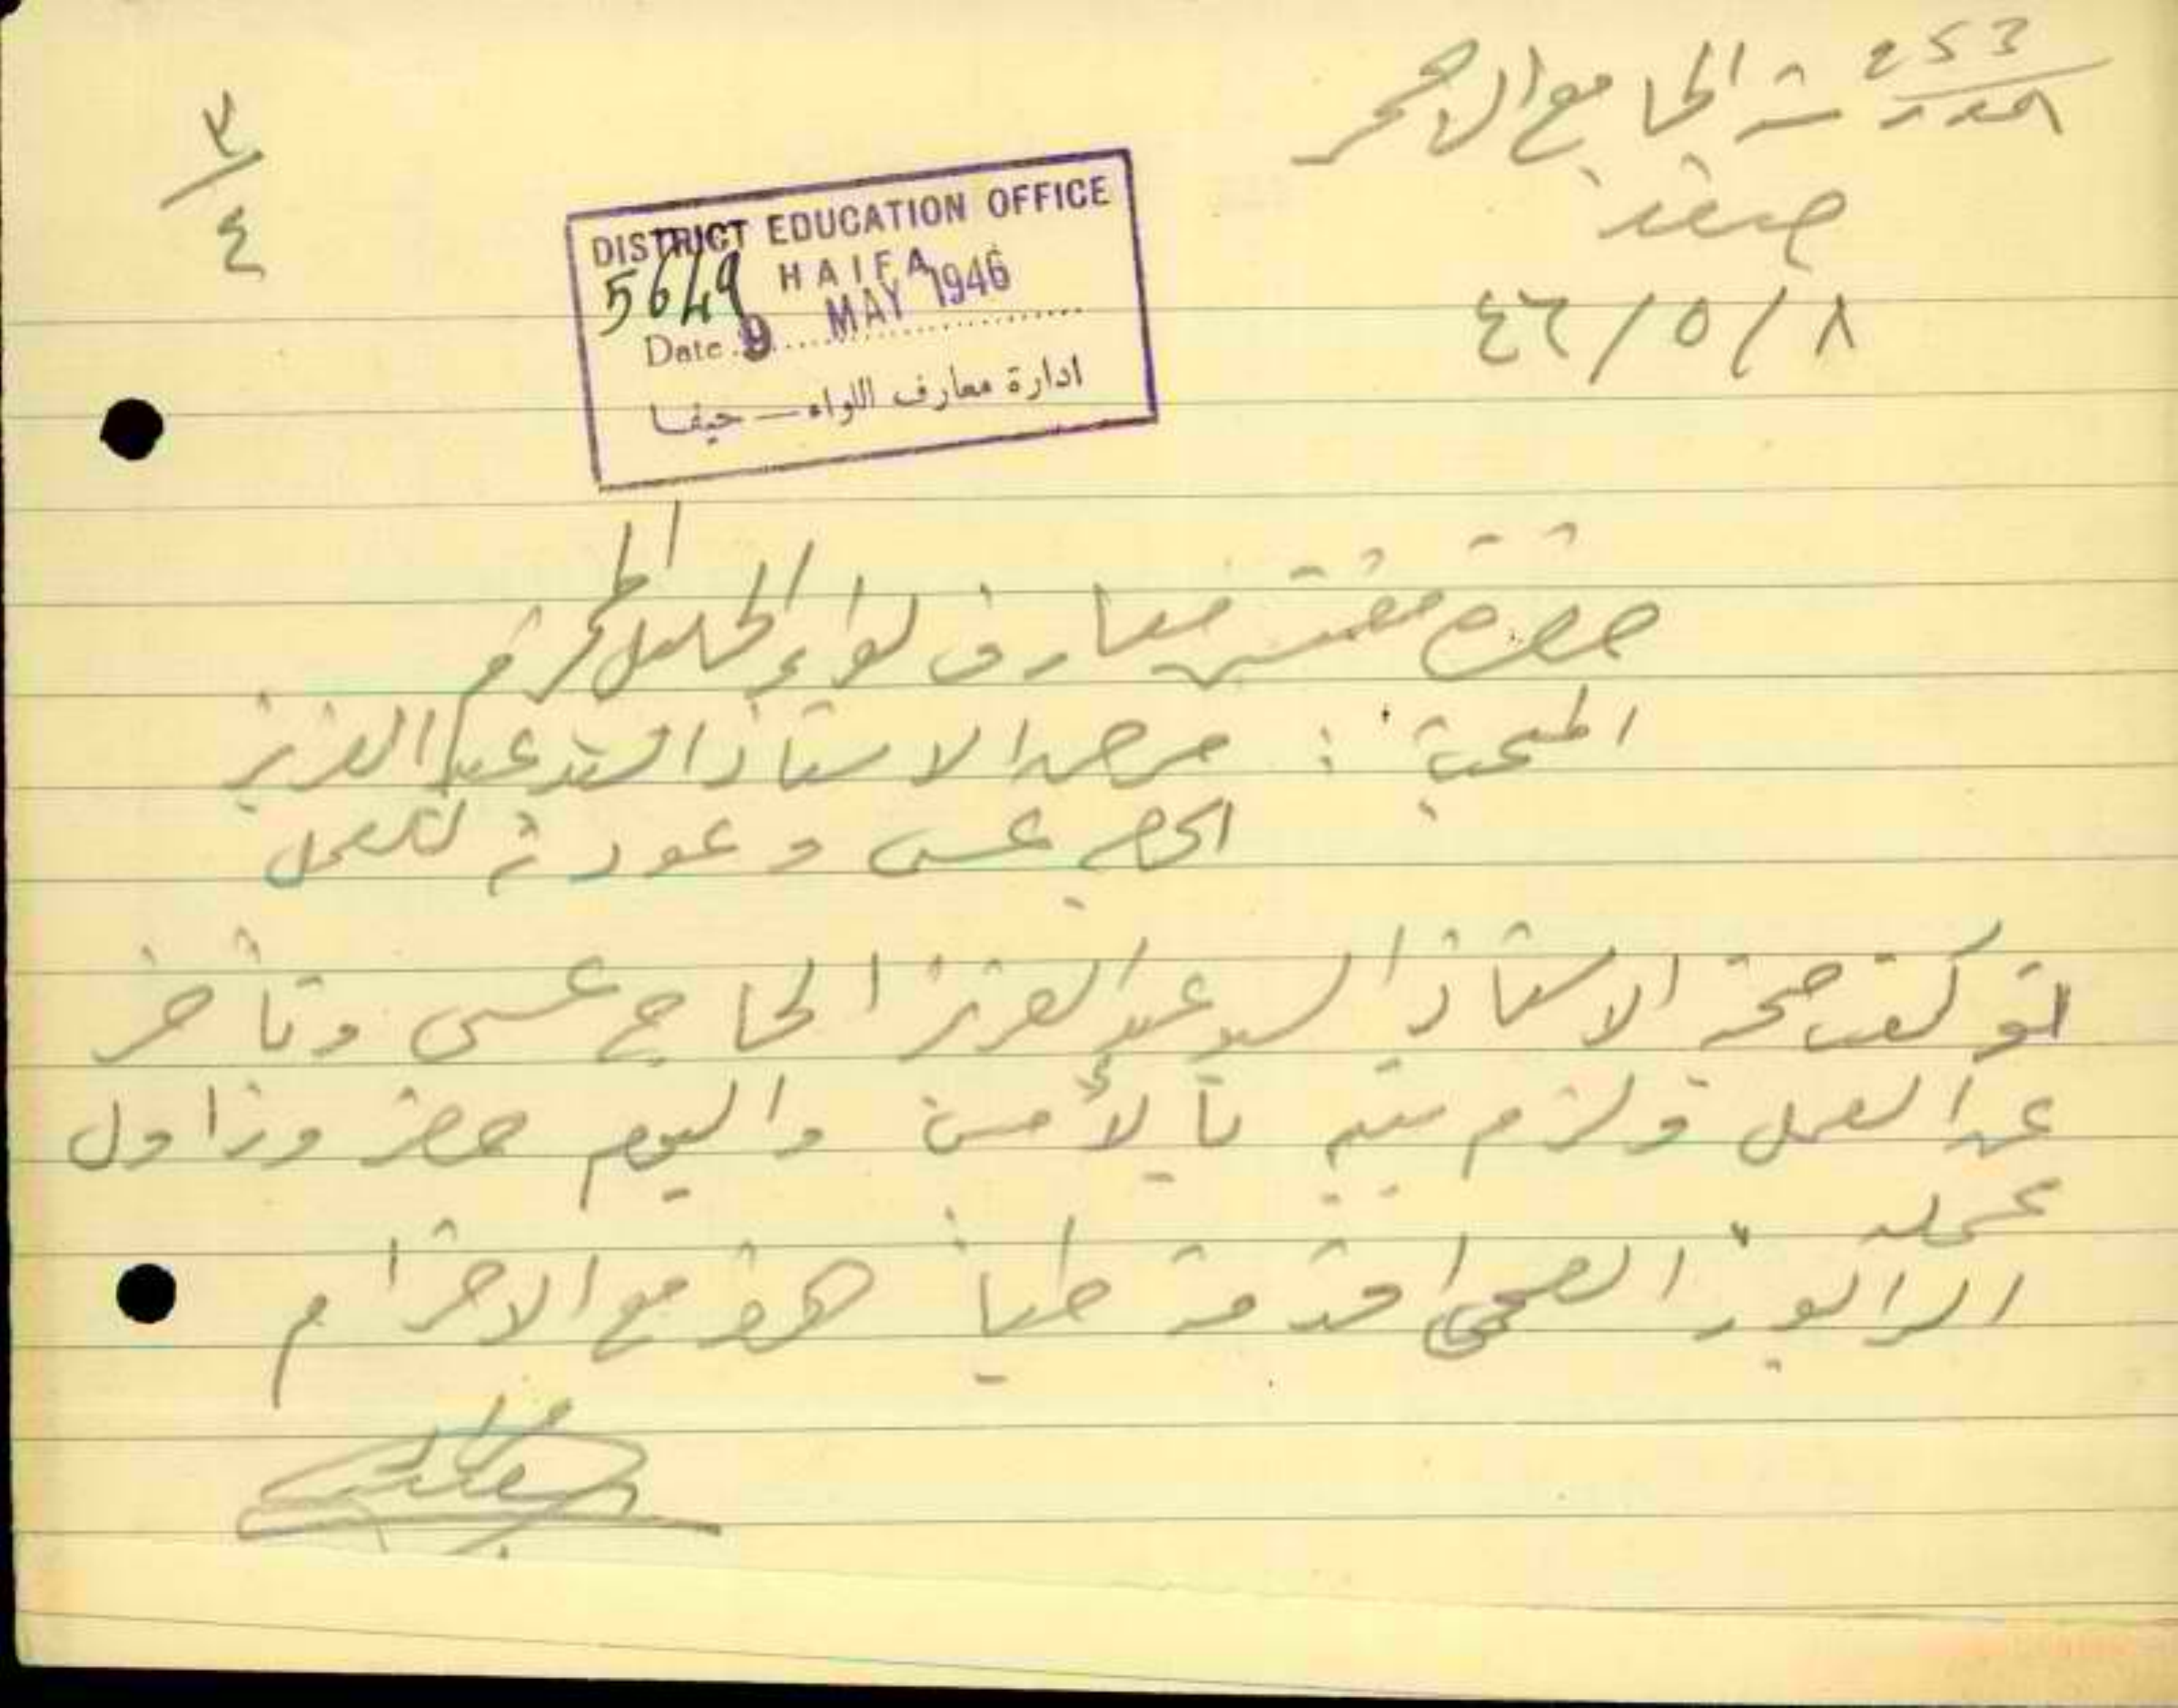 253
مدرسة الجامع الاحمر
صفد
٤٦/٥/٨
٢/٤
DISTRICT EDUCATION OFFICE
HAIFA
5649
Date 9 MAY 1946
ادارة معارف اللواء — حيفا
حضرة مفتش معارف لواء الجليل المحترم
: مرض الاستاذ السيد عبد العزيز
الحاج عيسى وعودته للعمل
توعكت صحة الاستاذ السيد عبد العزيز الحاج عيسى وتأخر
عن العمل ولزم بيته بالأمس واليوم حضر وزاول
عمله
الرابور الصحي اقدمه طيا هذا مع الاحترام